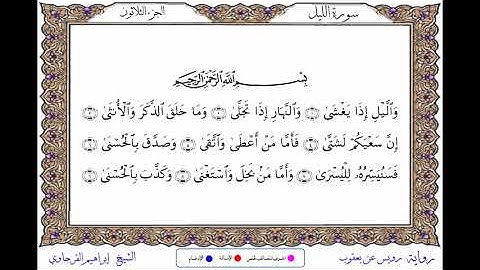 سورة الليل
الجزء الثلاثون
بِسْمِ ٱللَّهِ ٱلرَّحْمَٰنِ ٱلرَّحِيمِ
وَٱلَّيْلِ إِذَا يَغْشَىٰ ١ وَٱلنَّهَارِ إِذَا تَجَلَّىٰ ٢ وَمَا خَلَقَ ٱلذَّكَرَ وَٱلْأُنثَىٰ ٣
إِنَّ سَعْيَكُمْ لَشَتَّىٰ ٤ فَأَمَّا مَنْ أَعْطَىٰ وَٱتَّقَىٰ ٥ وَصَدَّقَ بِٱلْحُسْنَىٰ ٦
فَسَنُيَسِّرُهُۥ لِلْيُسْرَىٰ ٧ وَأَمَّا مَنۢ بَخِلَ وَٱسْتَغْنَىٰ ٨ وَكَذَّبَ بِٱلْحُسْنَىٰ ٩
رواية رويس عن يعقوب
الإمالة
الإدغام
الشيخ إبراهيم الفرجاوي